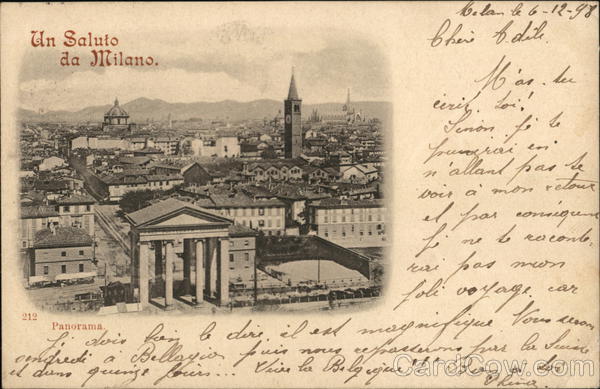 Un Saluto
da Milano.
Milan le 6-12-98
Chère Adèle.
M'as-tu
écrit, toi?
Sinon, je te
punirai en
n'allant pas te
voir à mon retour
et par conséquent
je ne te raconte-
rai pas mon
joli voyage car
212
Panorama.
je dois bien le dire, il est magnifique. Vous serons
vendredi à Bellagio puis nous repasserons par la Suisse
et dans quinze jours... Vive la Belgique!!!
CardCow.com